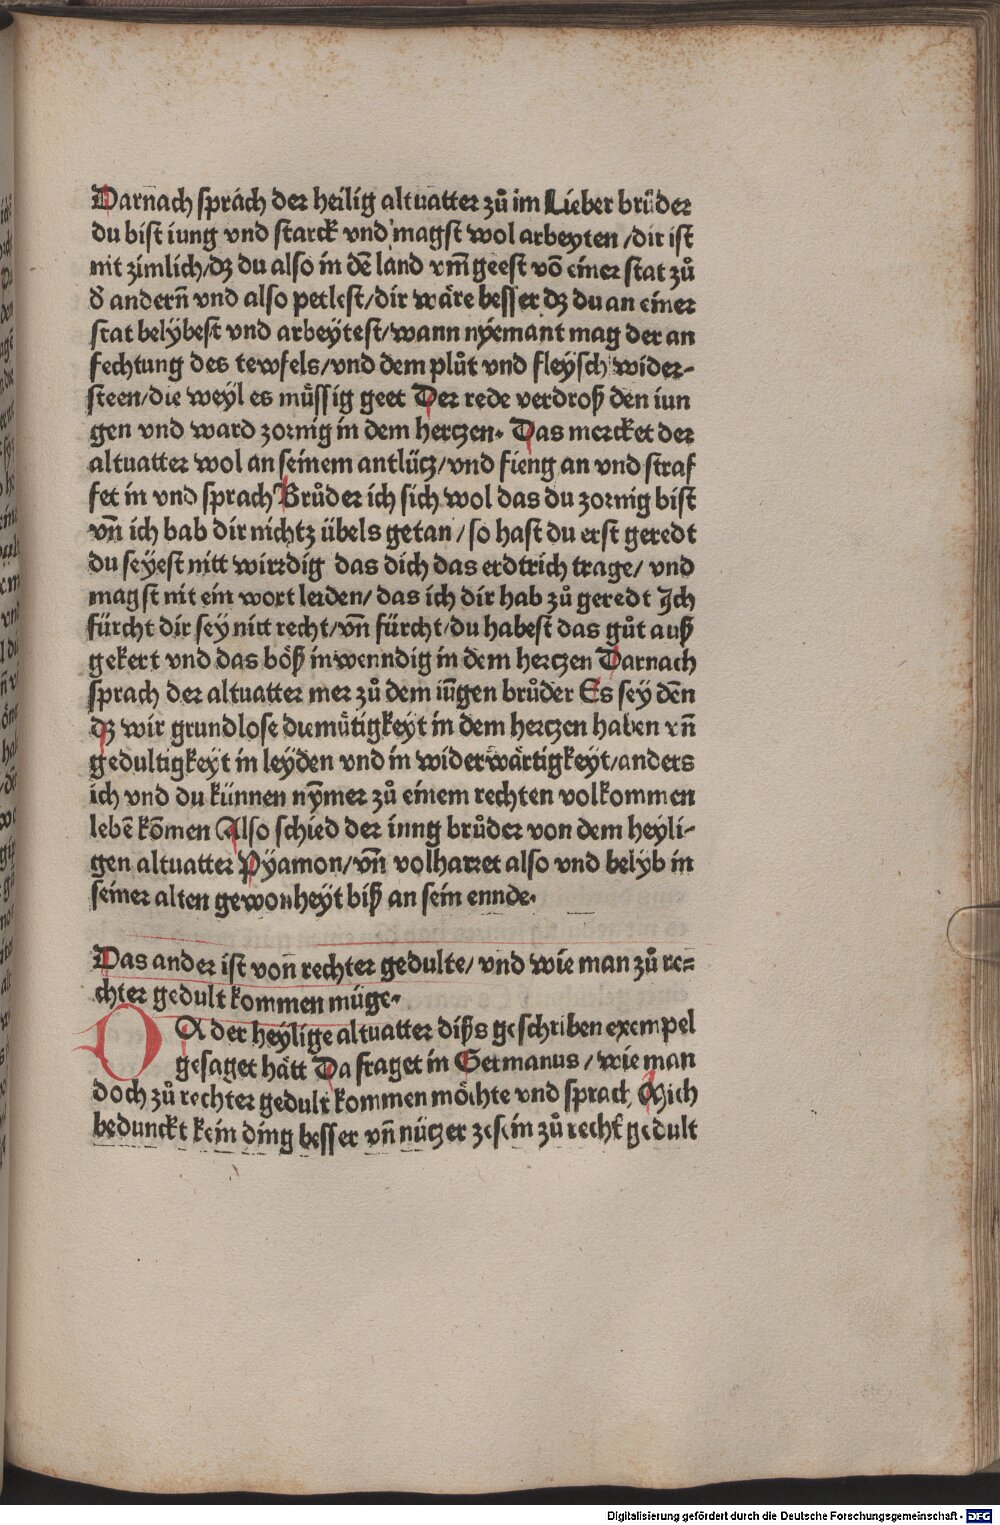 Darnach sprach der heilig altuatter zů im Lieber brůder
du bist iung vnd starck vnd magst wol arbeyten /dir ist
nit zimlich/dz du also in dē land vm̄ geest vō einer stat zů
đ andern̄ vnd also petlest/dir wäre besser dz du an einer
stat belÿbest vnd arbeÿtest/wann nÿemant mag der an
fechtung des tewfels/vnd dem plůt vnd fleÿsch wider-
steen/die weÿl es müssig geet Der rede verdroß den iun
gen vnd ward zornig in dem hertzen. Das mercket der
altuatter wol an seinem antlütz/vnd fieng an vnd straf
fet in vnd sprach Brůder ich sich wol das du zornig bist
vn̄ ich bab dir nichtz übels getan/so hast du erst geredt
du seÿest nitt wirrdig das dich das erdtrich trage/ vnd
magst nit ein wort leiden/das ich dir hab zů geredt Ich
fürcht dir sey nitt recht/vn̄ fürcht/du habest das gůt auß
gekert vnd das böß inwenndig in dem hertzen Darnach
sprach der altuatter mer zů dem iūgen brůder Es sey dēn
dz wir grundlose diemütigkeyt in dem hertzen haben vn̄
gedultigkeyt in leÿden vnd in widerwärtigkeyt/anders
ich vnd du künnen nȳmer zů einem rechten volkommen
lebē kōmen Also schied der inng brůder von dem heyli-
gen altuatter Pÿamon/vn̄ volharret also vnd belÿb in
seiner alten gewonheÿt biß an sein ennde.
Das ander ist von̄ rechter gedulte/ vnd wie man zů re-
chter gedult kommen müge.
DA der heÿlige altuatter diß̧s geschriben exempel
gesaget hätt Da fraget in Germanus/ wie man
doch zů rechter gedult kommen möchte vnd sprach Mich
bedunckt kein ding besser vn̄ nützer zesein zů recht gedult
Digitalisierung gefördert durch die Deutsche Forschungsgemeinschaft - DFG